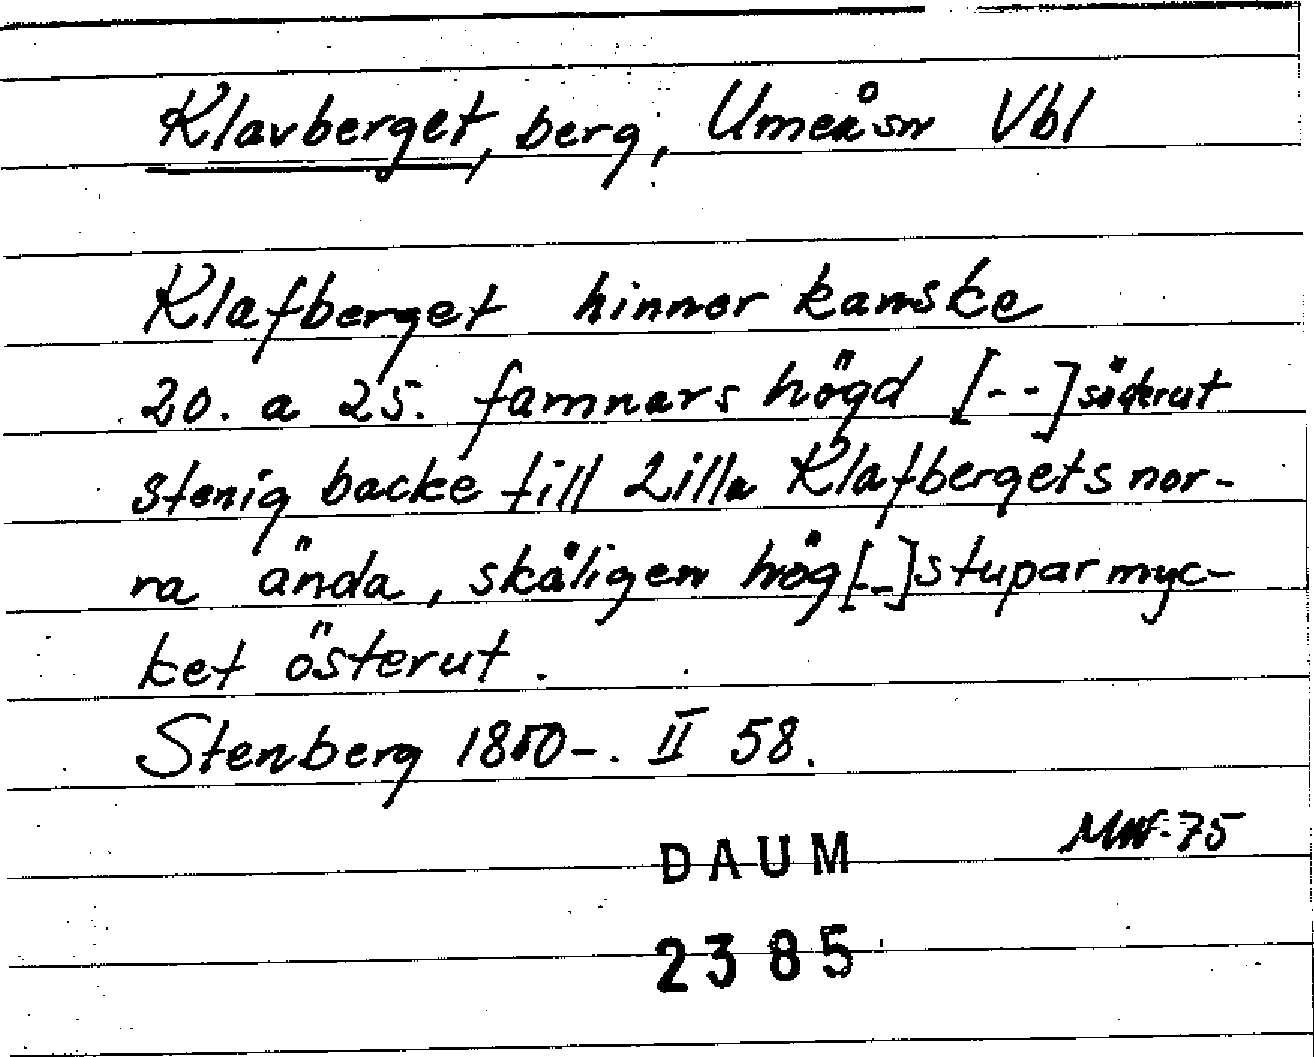 Klavberget, berg, Umeå sn Vbl
Klafberget hinner kanske
20. a 25. famnars högd [--] söderut
stenig backe till Lilla Klafbergets nor-
ra ända, skäligen hög [-] stupar myc-
ket österut.
Stenberg 1800-. II 58.
MW-75
DAUM
2385